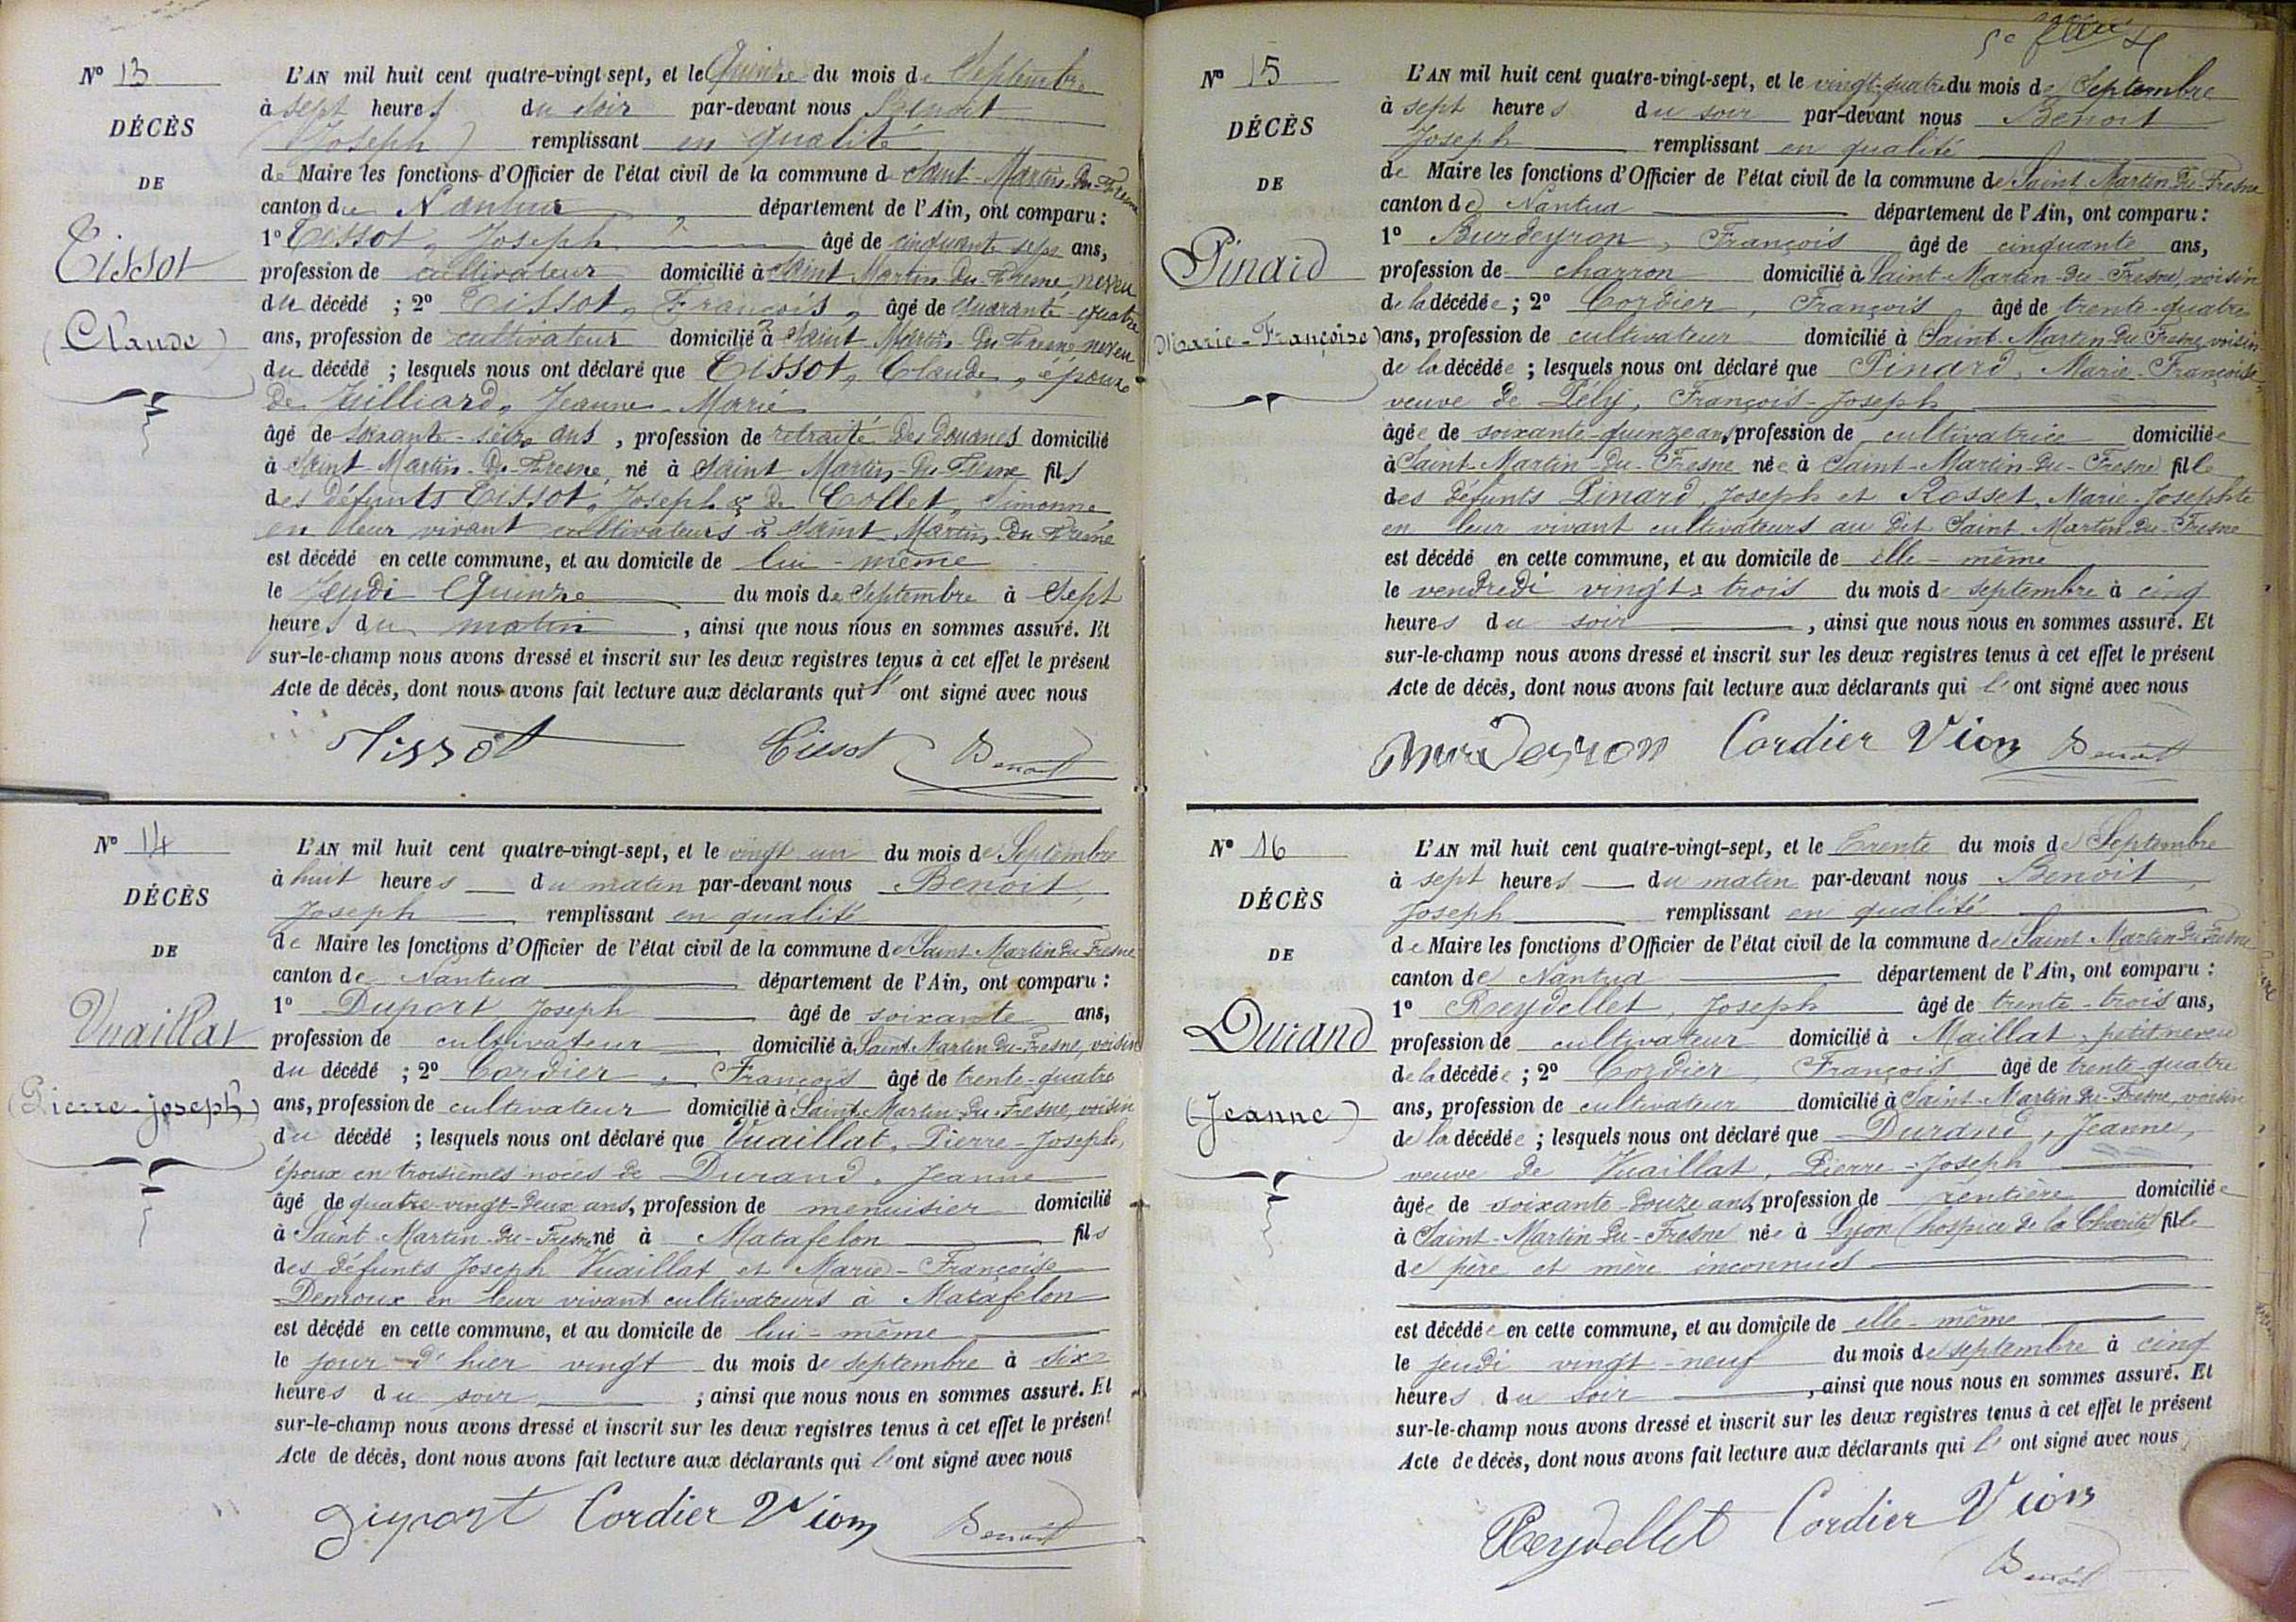 Nº 13
DÉCÈS
DE
Tissot
(Claude)
L'AN mil huit cent quatre-vingt sept, et le Quinze du mois de Septembre
à sept heures du soir par-devant nous Benoit
(Joseph) remplissant en qualité
de Maire les fonctions d'Officier de l'état civil de la commune de Saint-Martin-du-Fresne
canton de Nantua département de l'Ain, ont comparu :
1º Tissot, Joseph âgé de cinquante sept ans,
profession de cultivateur domicilié à Saint Martin-du-Fresne neveu
du décédé ; 2º Tissot, François, âgé de quarante-quatre
ans, profession de cultivateur domicilié à Saint-Martin-du-Fresne neveu
du décédé ; lesquels nous ont déclaré que Tissot, Claude, époux
de Juilliard, Jeanne-Marie
âgé de soixante-seize ans, profession de retraité des douanes domicilié
à Saint-Martin-du-Fresne, né à Saint Martin-du-Fresne fils
des défunts Tissot, Joseph & de Collet, Simonne,
en leur vivant cultivateurs à Saint Martin-du-Fresne
est décédé en cette commune, et au domicile de lui-même
le Jeudi Quinze du mois de Septembre à Sept
heures du matin, ainsi que nous nous en sommes assuré. Et
sur-le-champ nous avons dressé et inscrit sur les deux registres tenus à cet effet le présent
Acte de décès, dont nous avons fait lecture aux déclarants qui l'ont signé avec nous
Tissot Tissot Benoit
Nº 14
DÉCÈS
DE
Vuaillat
(Pierre-joseph)
L'AN mil huit cent quatre-vingt-sept, et le vingt un du mois de Septembre
à huit heures du matin par-devant nous Benoit,
Joseph remplissant en qualité
de Maire les fonctions d'Officier de l'état civil de la commune de Saint-Martin-du-Fresne
canton de Nantua département de l'Ain, ont comparu :
1º Duport, Joseph âgé de soixante ans,
profession de cultivateur domicilié à Saint-Martin-du-Fresne, voisin
du décédé ; 2º Cordier, François âgé de trente-quatre
ans, profession de cultivateur domicilié à Saint-Martin-du-Fresne, voisin
du décédé ; lesquels nous ont déclaré que Vuaillat, Pierre-Joseph,
époux en troisièmes noces de Durand, Jeanne
âgé de quatre-vingt-deux ans, profession de menuisier domicilié
à Saint-Martin-du-Fresne né à Matafelon fils
des défunts Joseph Vuaillat et Marie-Françoise
Demoux en leur vivant cultivateurs à Matafelon
est décédé en cette commune, et au domicile de lui-même
le jour d'hier vingt du mois de septembre à six
heures du soir ; ainsi que nous nous en sommes assuré. Et
sur-le-champ nous avons dressé et inscrit sur les deux registres tenus à cet effet le présent
Acte de décès, dont nous avons fait lecture aux déclarants qui l'ont signé avec nous
Duport Cordier Vion Benoit
Nº 15
DÉCÈS
DE
Pinard
(Marie-Françoise)
L'AN mil huit cent quatre-vingt-sept, et le vingt-quatre du mois de Septembre
à sept heures du soir par-devant nous Benoit
Joseph remplissant en qualité
de Maire les fonctions d'Officier de l'état civil de la commune de Saint-Martin-du-Fresne
canton de Nantua département de l'Ain, ont comparu :
1º Burdeyron, François âgé de cinquante ans,
profession de charron domicilié à Saint-Martin-du-Fresne, voisin
de la décédée ; 2º Cordier, François âgé de trente-quatre
ans, profession de cultivateur domicilié à Saint-Martin-du-Fresne, voisin
de la décédée ; lesquels nous ont déclaré que Pinard, Marie-Françoise
veuve de Pély, François-Joseph
âgée de soixante-quinze ans, profession de cultivatrice domiciliée
à Saint-Martin-du-Fresne née à Saint-Martin-du-Fresne fille
des défunts Pinard, Joseph et Rosset, Marie-Josephte
en leur vivant cultivateurs au dit Saint-Martin-du-Fresne
est décédé en cette commune, et au domicile de elle-même
le vendredi vingt-trois du mois de septembre à cinq
heures du soir, ainsi que nous nous en sommes assuré. Et
sur-le-champ nous avons dressé et inscrit sur les deux registres tenus à cet effet le présent
Acte de décès, dont nous avons fait lecture aux déclarants qui l'ont signé avec nous
Burdeyron Cordier Vion Benoit
Nº 16
DÉCÈS
DE
Durand
(Jeanne)
L'AN mil huit cent quatre-vingt-sept, et le Trente du mois de Septembre
à sept heures du matin par-devant nous Benoit,
Joseph remplissant en qualité
de Maire les fonctions d'Officier de l'état civil de la commune de Saint-Martin-du-Fresne
canton de Nantua département de l'Ain, ont comparu :
1º Reydellet, Joseph âgé de trente-trois ans,
profession de cultivateur domicilié à Maillat, petit neveu
de la décédée ; 2º Cordier, François âgé de trente-quatre
ans, profession de cultivateur domicilié à Saint-Martin-du-Fresne, voisin
de la décédée ; lesquels nous ont déclaré que Durand, Jeanne,
veuve de Vuaillat, Pierre-Joseph
âgée de soixante-douze ans, profession de rentière domiciliée
à Saint-Martin-du-Fresne née à Lyon (hospice de la Charité) fille
de père et mère inconnus
est décédée en cette commune, et au domicile de elle-même
le jeudi vingt-neuf du mois de septembre à cinq
heures du soir, ainsi que nous nous en sommes assuré. Et
sur-le-champ nous avons dressé et inscrit sur les deux registres tenus à cet effet le présent
Acte de décès, dont nous avons fait lecture aux déclarants qui l'ont signé avec nous
Reydellet Cordier Vion
Benoit